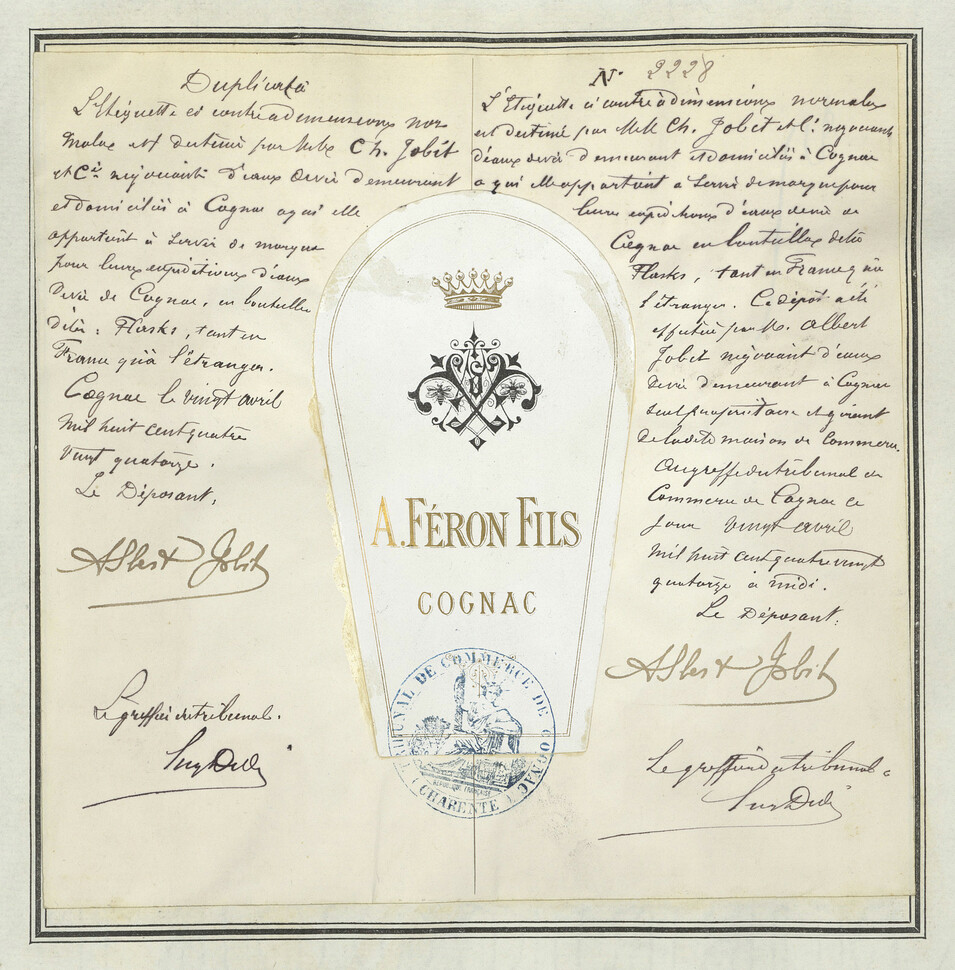 Duplicata
L'Etiquette ci contre a dimensions nor
males est destiné par MM Ch. Jobit
et Cie négociants d'eaux de vie demeurant
et domiciliés à Cognac a qui elle
appartient à servir de marque
pour leurs expéditions d'eaux
de vie de Cognac, en bouteilles
dites: Flasks, tant en
France qu'à l'étranger.
Cognac le vingt avril
mil huit cent quatre
vingt quatorze.
Le Déposant,
Albert Jobit
Le greffier du tribunal.
N° 2228
L'Etiquette ci contre à dimensions normales
est destiné par MM Ch. Jobit et Cie négociants
d'eaux de vie demeurant et domiciliés à Cognac
a qui elle appartient a servir de marque pour
leurs expéditions d'eaux de vie de
Cognac en bouteilles dites
Flasks, tant en France qu'à
l'étranger. Ce dépôt a été
effectué par M. Albert
Jobit négociant d'eaux
de vie demeurant à Cognac
seul propriétaire et gérant
de la dite maison de Commerce.
Au greffe du tribunal de
Commerce de Cognac ce
jour vingt avril
mil huit cent quatre vingt
quatorze à midi.
Le Déposant:
Albert Jobit
Le greffier du tribunal
A. FÉRON FILS
COGNAC
TRIBUNAL DE COMMERCE DE COGNAC
(CHARENTE)
RÉPUBLIQUE FRANÇAISE